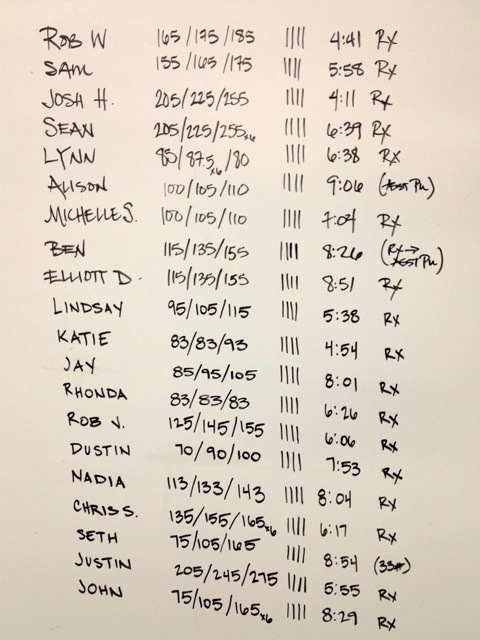 ROB W 165/175/185 |||| 4:41 RX
SAM 155/165/175 |||| 5:58 RX
JOSH H. 205/225/255 |||| 4:11 RX
SEAN 205/225/255x6 |||| 6:39 RX
LYNN 85/875x6/80 |||| 6:38 RX
ALISON 100/105/110 |||| 9:06 (ASST PU)
MICHELLE S. 100/105/110 |||| 7:04 RX
BEN 115/135/155 |||| 8:26 (RX→ASST PU)
ELLIOTT D. 115/135/155 |||| 8:51 RX
LINDSAY 95/105/115 |||| 5:38 RX
KATIE 83/83/93 |||| 4:54 RX
JAY 85/95/105 |||| 8:01 RX
RHONDA 83/83/83 |||| 6:26 RX
ROB V. 125/145/155 |||| 6:06 RX
DUSTIN 70/90/100 |||| 7:53 RX
NADIA 113/133/143 |||| 8:04 RX
CHRIS S. 135/155/165x6 |||| 6:17 RX
SETH 75/105/165 |||| 8:54 (33#)
JUSTIN 205/245/275 |||| 5:55 RX
JOHN 75/105/165x6 |||| 8:29 RX